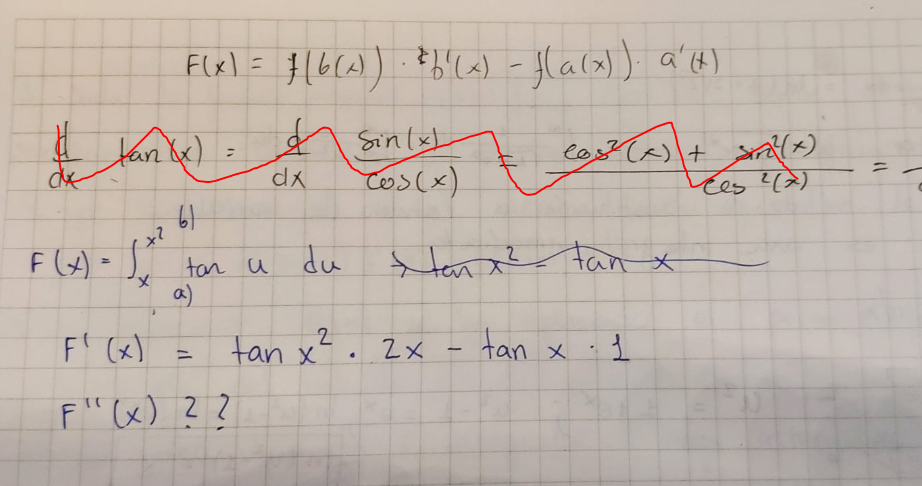 F(x) = f(b(x)) · b'(x) - f(a(x)) · a'(x)
d/dx tan(x) = d/dx sin(x)/cos(x) = cos²(x) + sin²(x)/cos²(x) =
F(x) = ∫ₓ^x² tan u du → tan x² - tan x
b)
a)
F'(x) = tan x² · 2x - tan x · 1
F''(x) ? ?